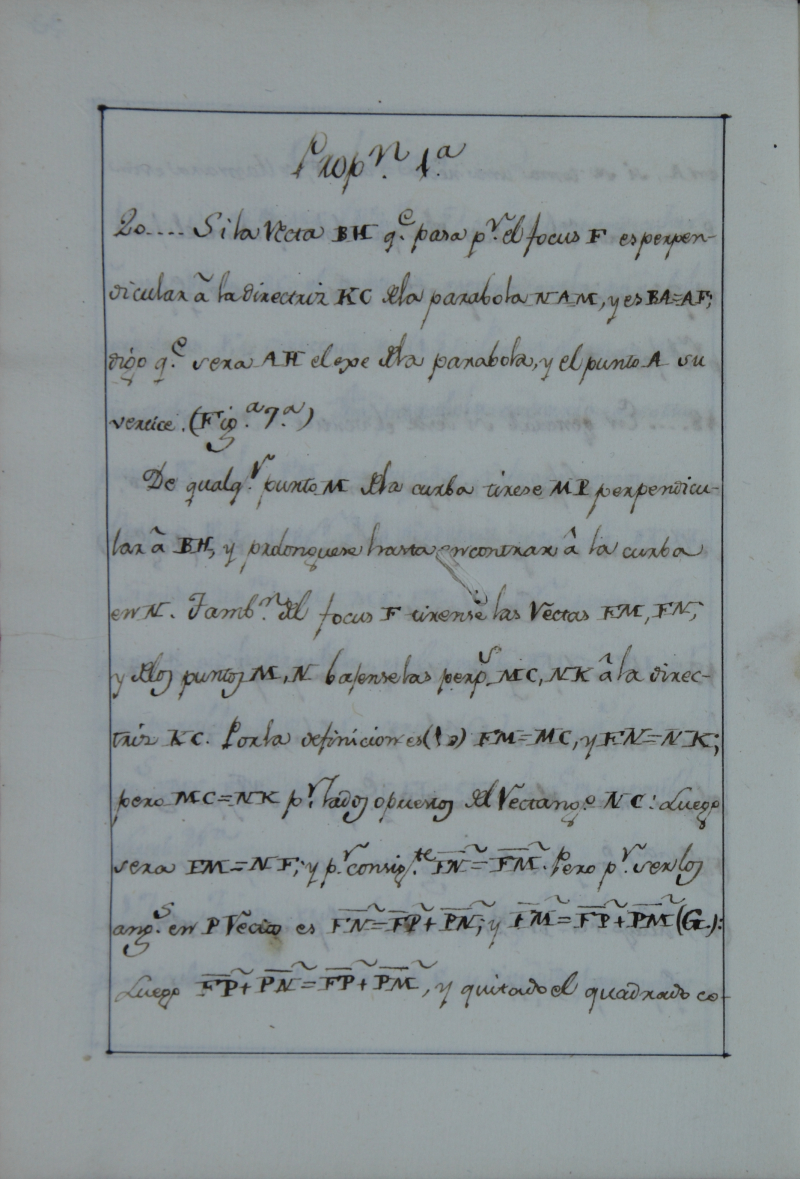 Propⁿ. 1.ª
20.... Si la Recta BH q.ᵉ pasa pʳ. el focus F es perpen-
dicular à la directriz KC dela parabola NAM, y es BA=AF;
digo q.ᵉ sera AH el exe dela parabola, y el punto A su
vertice. (Fig.ª 7.ª)
De qualqʳ. punto M dela curba tirese MP perpendicu-
lar à BH, y prolonguese hasta encontrar â la curba
en N. Tambⁿ. del focus F tirense las Rectas FM, FN;
y delos puntos M, N bajense las perpˢ. MC, NK â la direc-
triz KC. Por la definicion es FM=MC, y FN=NK;
pero MC=NK pʳ. lados opuestos del Rectang.º NC: Luego
sera FM=NF; y pʳ. consigᵗᵉ. F̅N̅=F̅M̅. Pero pʳ. ser los
angˢ. en P Rectos es F̅N̅=F̅P̅+P̅N̅; y F̅M̅=F̅P̅+P̅M̅ (G.):
Luego F̅P̅+P̅N̅=F̅P̅+P̅M̅, y quitado el quadrado co-